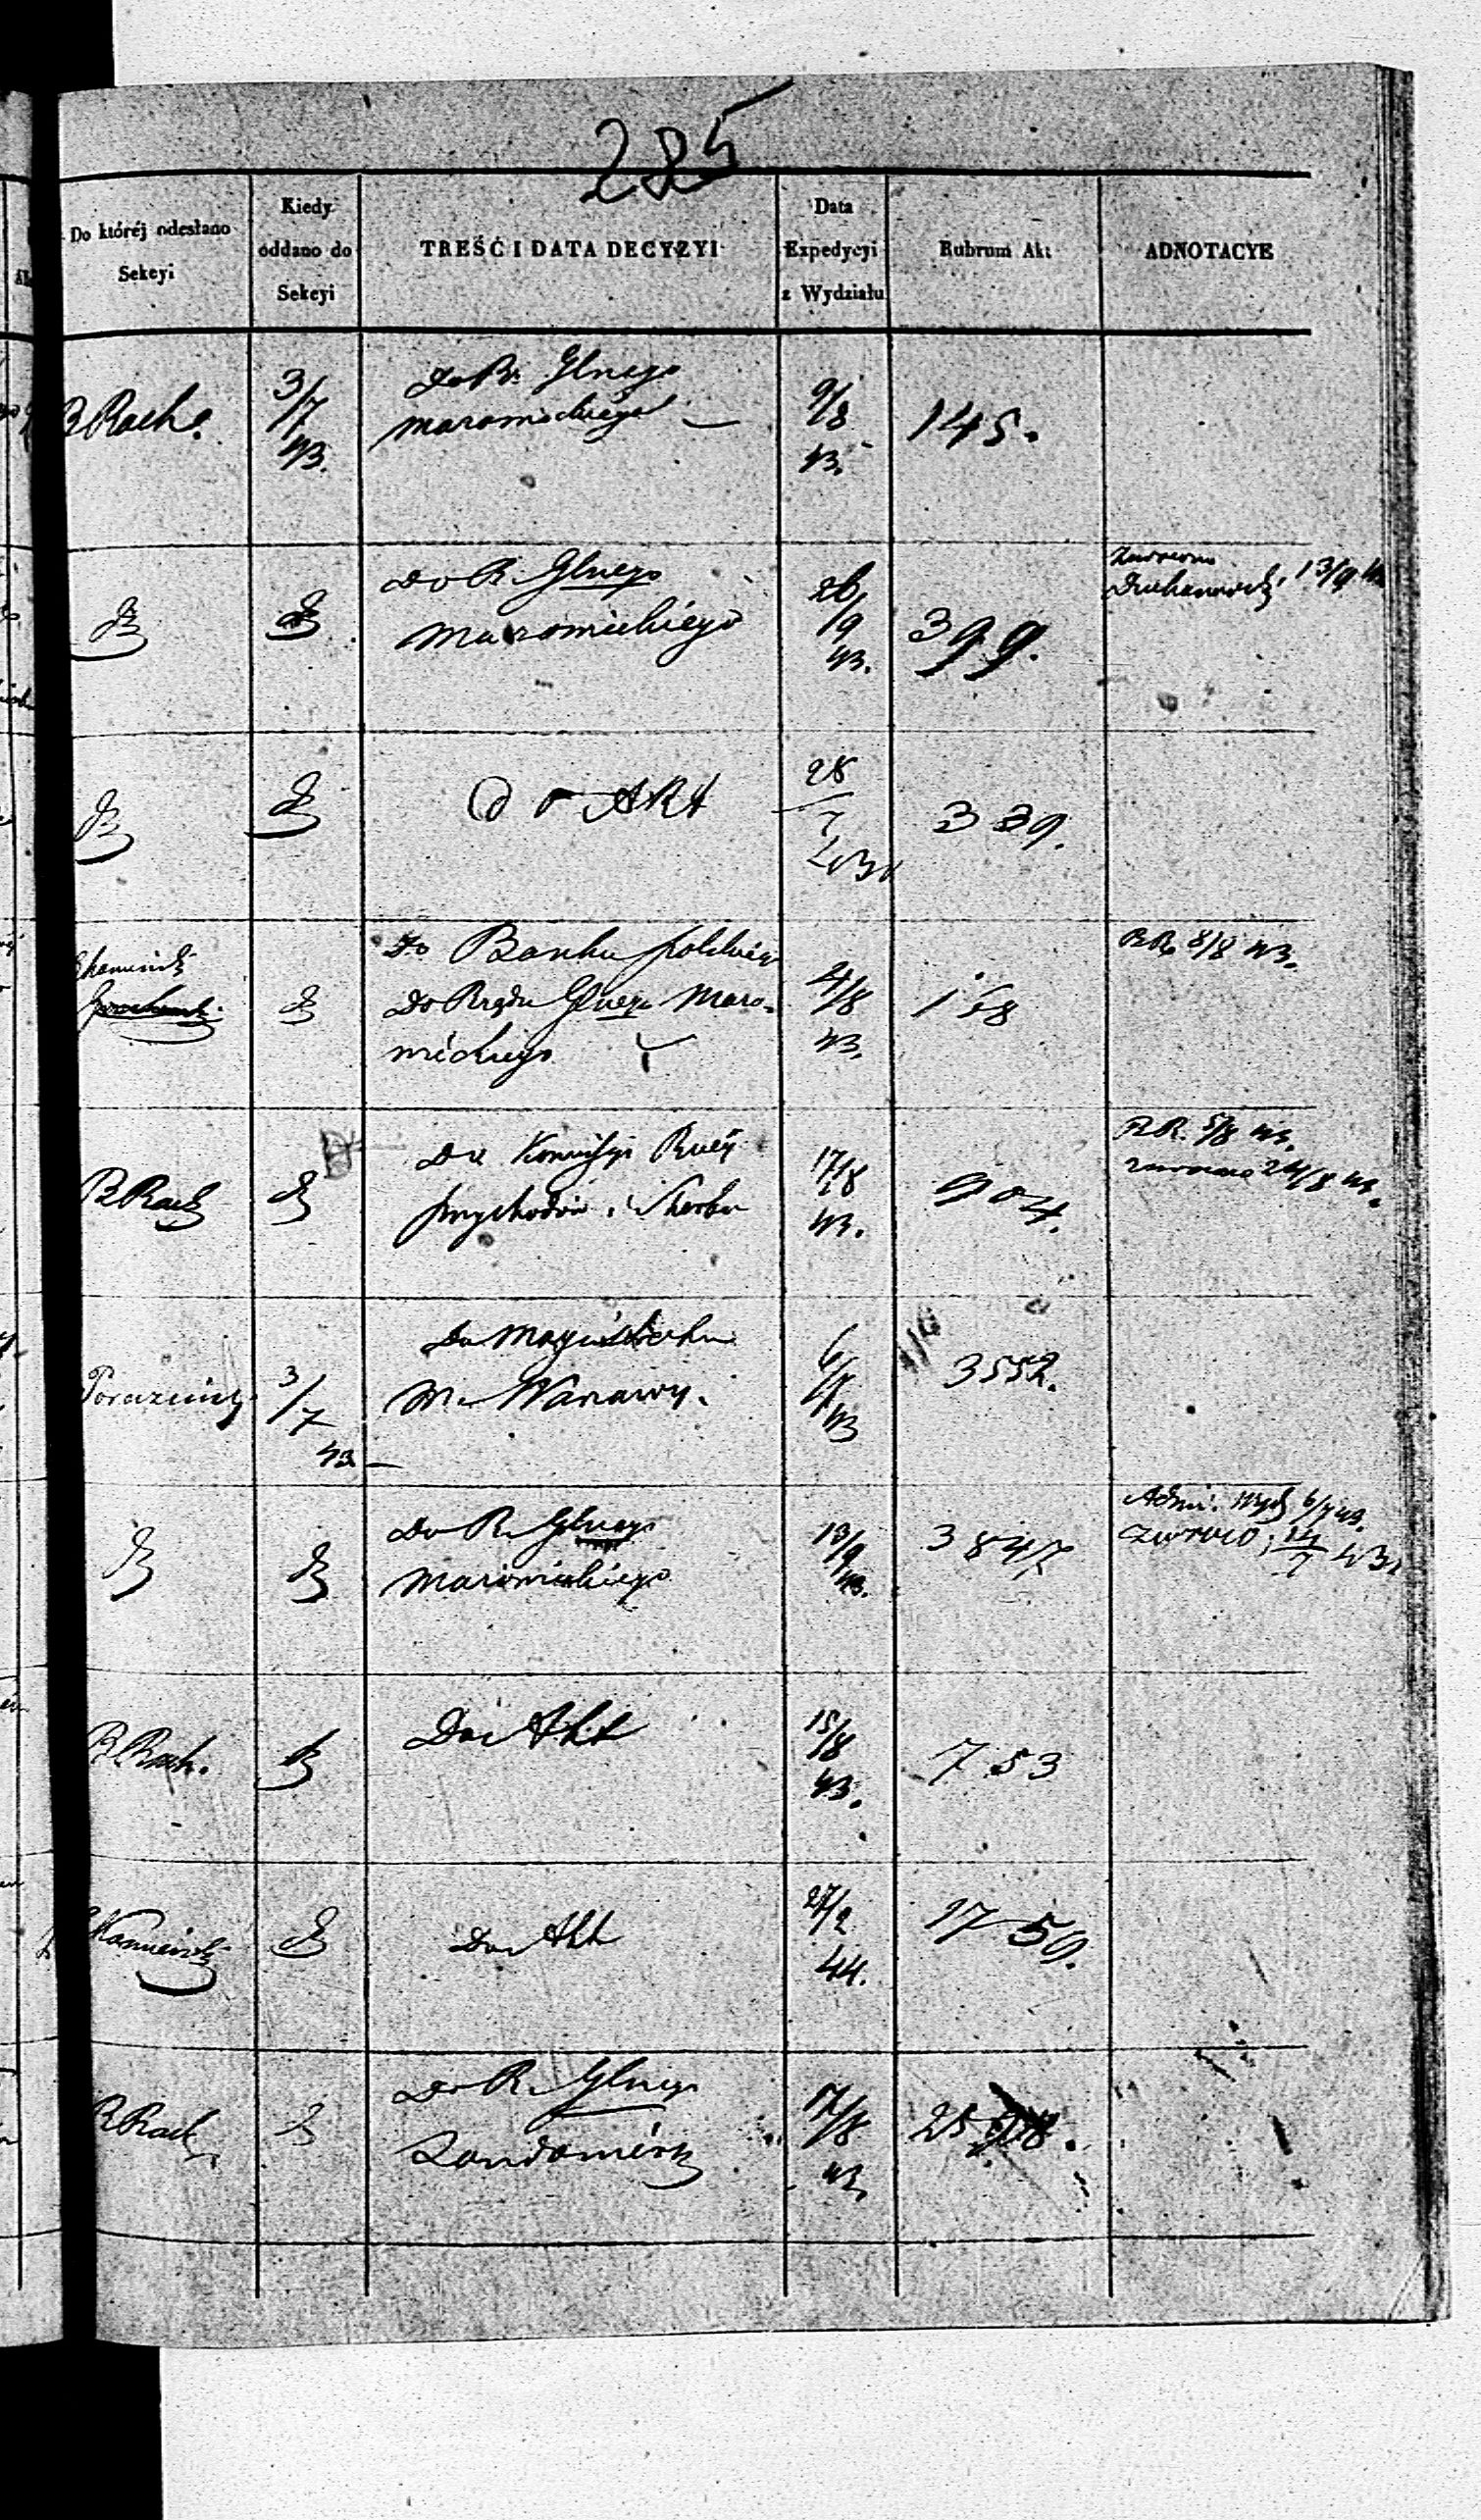 285
Do któréj odesłano
Sekcyi
Kiedy
oddano do
Sekcyi
TREŚĆ I DATA DECYZYI
Data
Expedycyi
z Wydziału
Rubrum Akt
ADNOTACYE
B Rach.
3/7
43.
Do R. Glnego
Mazowieckiego
9/8
43.
145.
Do R. Glnego
Mazowieckiego
26/9
43.
399.
13/9 43
Do Akt
28
7
43
339.
Do Banku polskiego
Do Rządu Glnego Mazo-
wieckiego
4/8
43.
158
RR. 8/8 43.
B Rach
Do Komisyi Rwéy
Przychodów i Skarbu
17/8
43.
904.
RR. 5/8 43.
zwrócono 24/8 43.
3/7
43
Do Magistratu
M. Warszawy.
6/7
43
3552.
Do R. Glnego
Mazowieckiego
13/9
43.
3847
6/7 43.
14
7 43
B Rach.
Do Akt
15/8
43.
753
Do Akt
27/2
44.
1759.
B Rach
Do R. Glnego
Sandomirsk
17/8
43